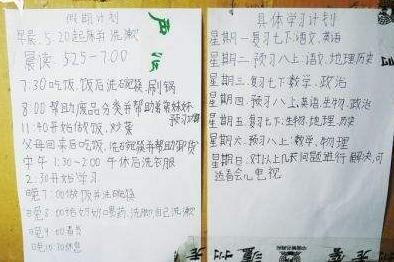 假期计划
早晨5.20起床并洗漱
晨读: 525-700
7.30吃饭,饭后洗碗筷刷锅
8:00帮助废品分类并帮助弟弟妹妹
预习
11:40开始做饭,炒菜
父母回来后吃饭,洗碗筷并帮助卸货
中午1:30-2:00午休后洗衣服
2:30开始学习.
晚7:00做饭并洗碗筷
晚8:00给奶奶喂药、洗脚自己洗漱
晚9:00看书
晚10:30休息
具体学习计划
星期一复习七下语文,英语
星期二预习八上:语文,地理历史
星期三复习七下数学,政治
星期四.预习八上英语生物,政治
星期五复习七下生物,地理.历史
星期六.预习八上:数学,物理
星期日.对以上几天问题进行解决,可
适看会儿电视